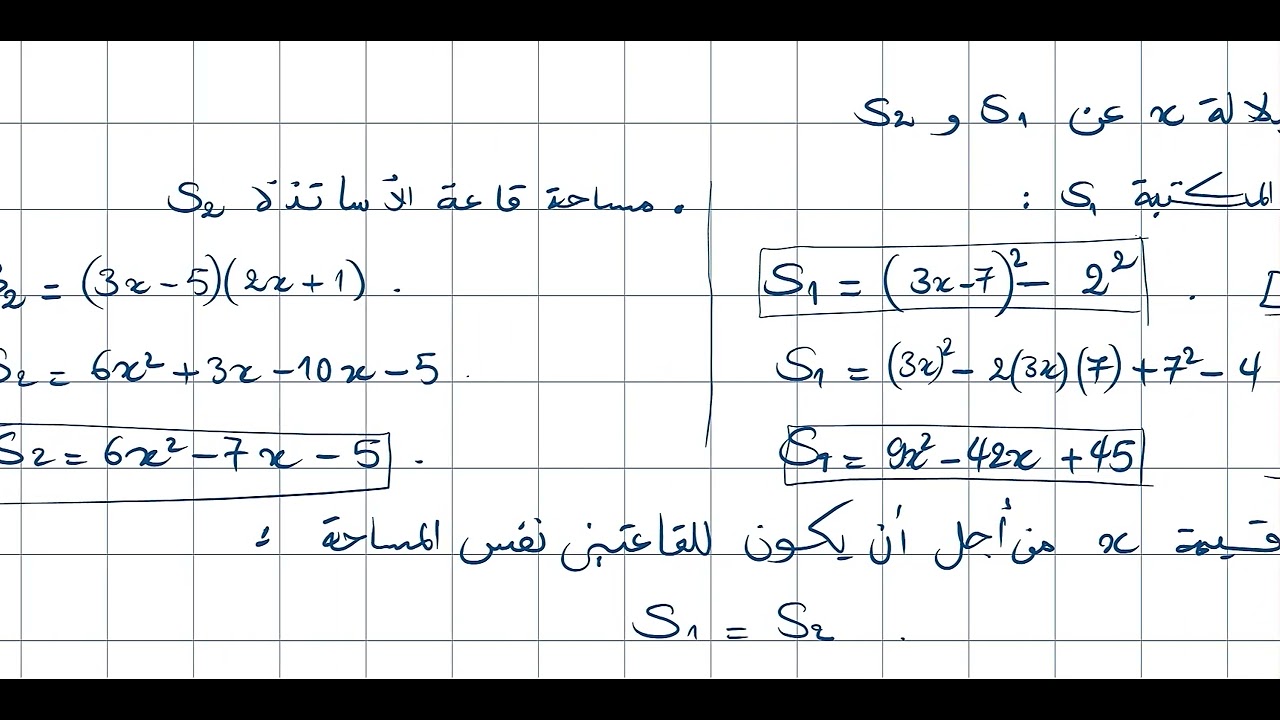 بدلالة x عن S₁ و S₂
المكتبة S₁ :
S₁ = (3x-7)² - 2² .
S₁ = (3x)² - 2(3x)(7) + 7² - 4
S₁ = 9x² - 42x + 45
. مساحة قاعة الأساتذة S₂
S₂ = (3x - 5)(2x + 1) .
S₂ = 6x² + 3x - 10x - 5 .
S₂ = 6x² - 7x - 5 .
قيمة x من أجل أن يكون للقاعتين نفس المساحة :
S₁ = S₂ .